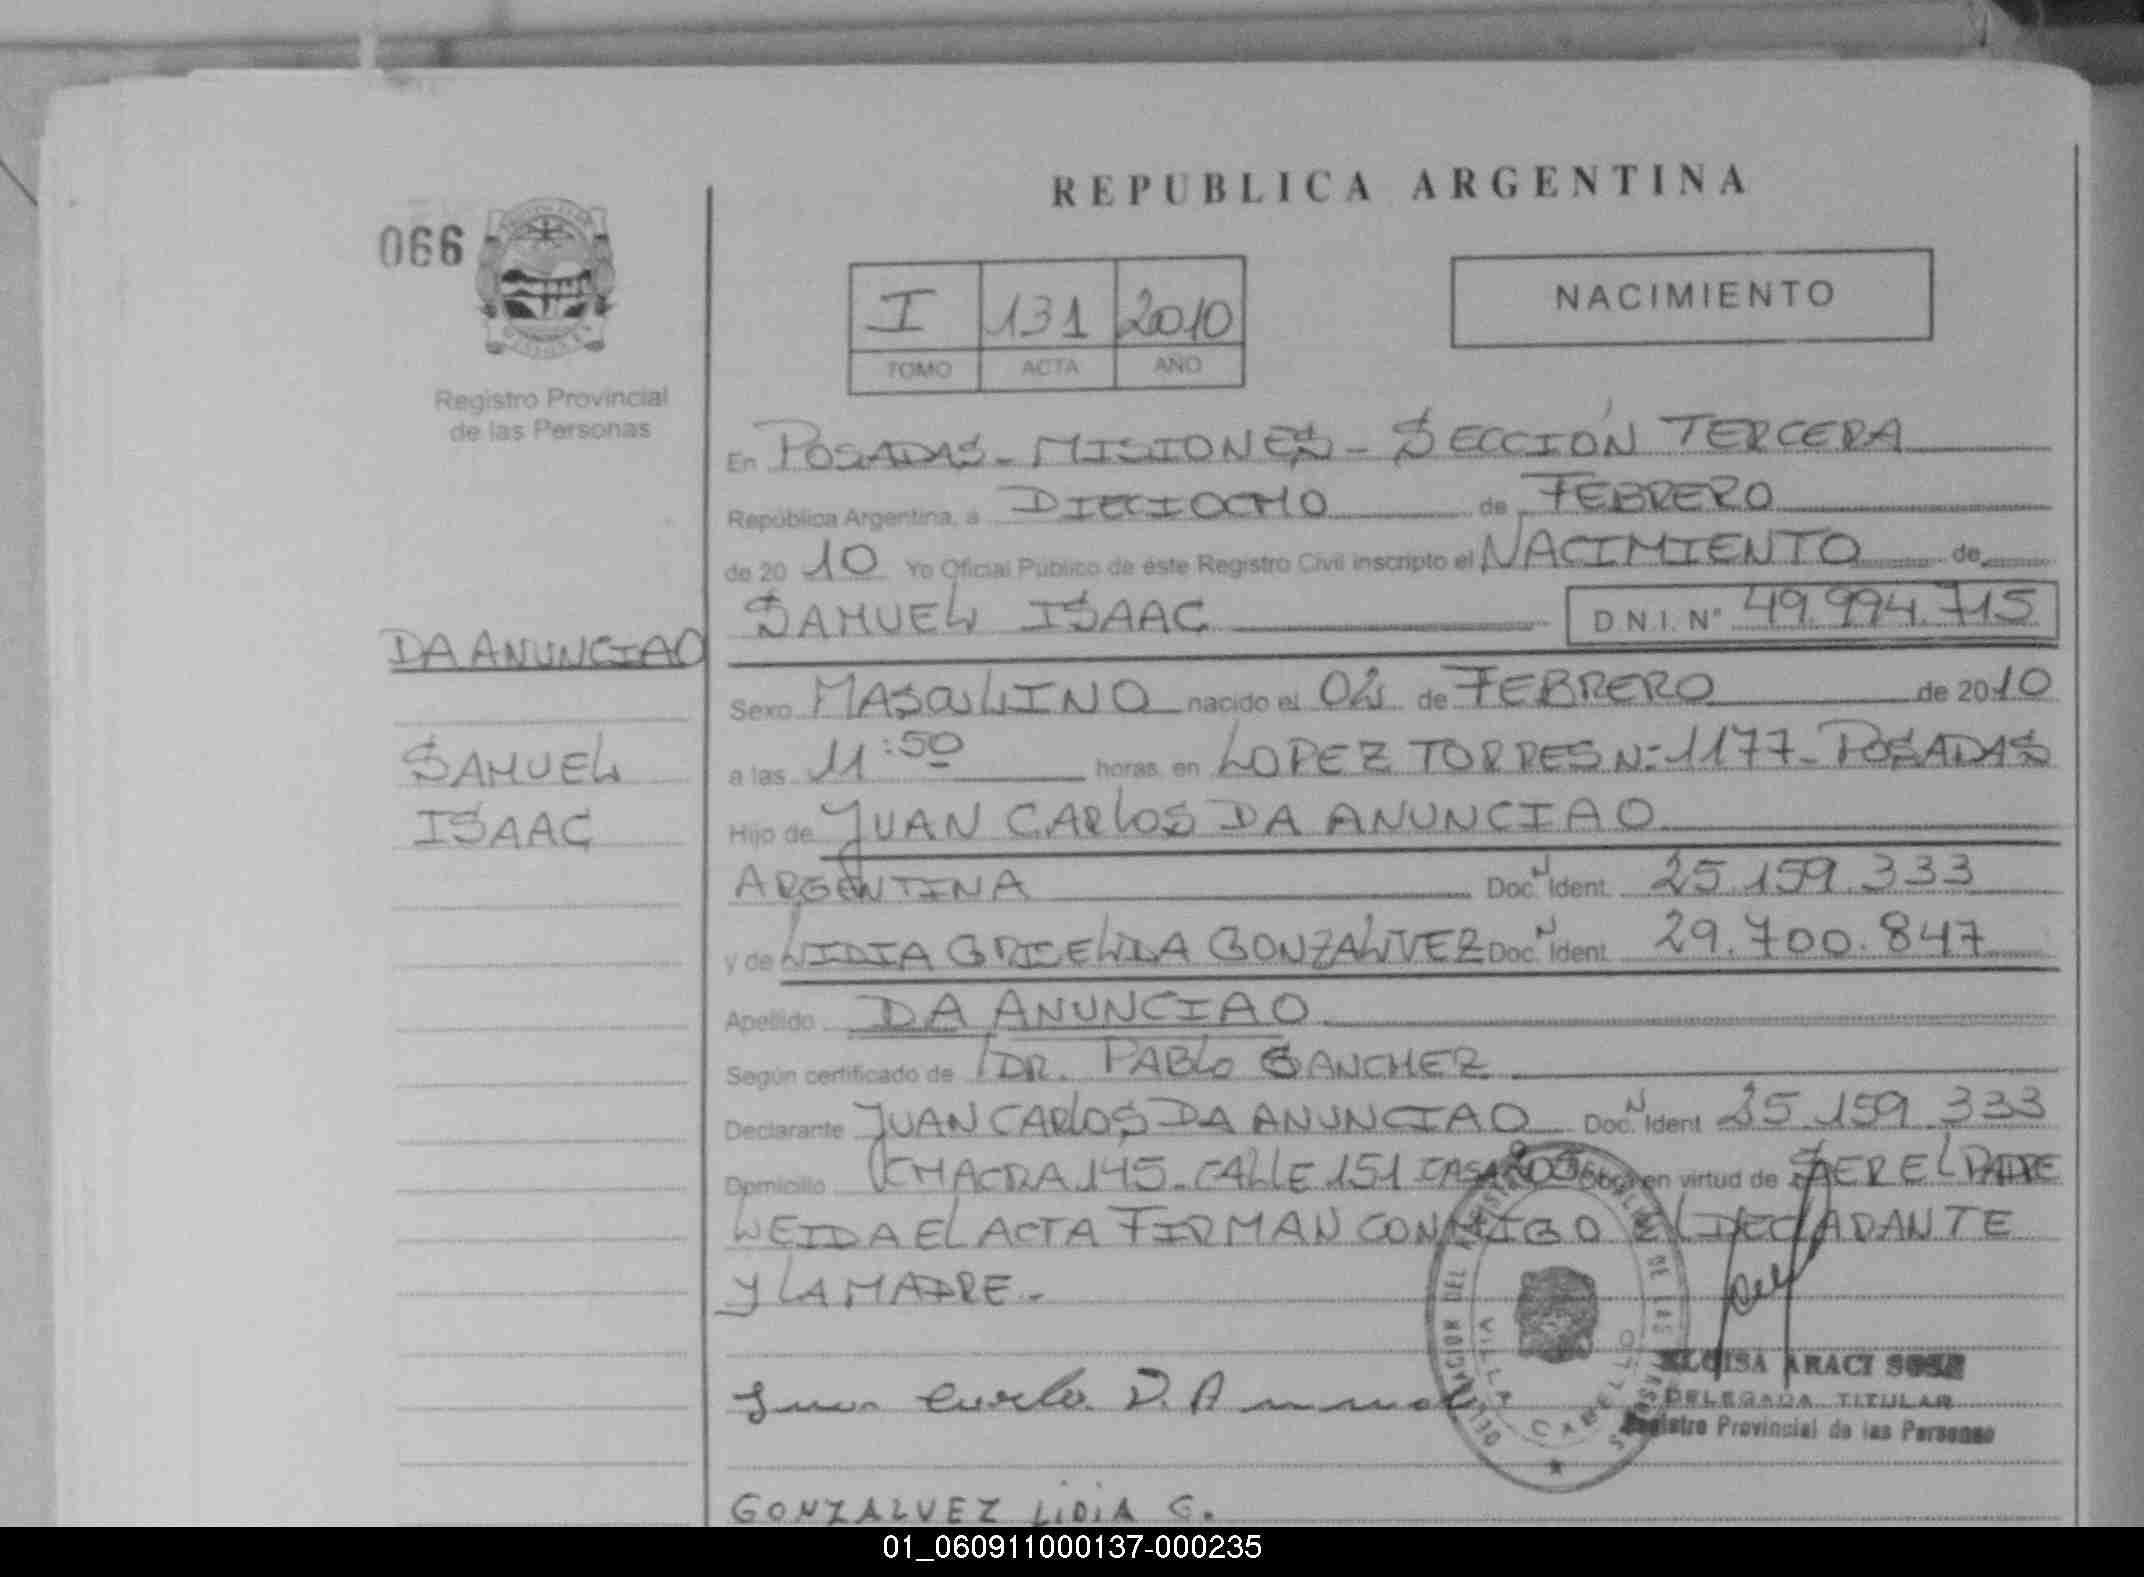 REPUBLICA ARGENTINA
066
I 131 2010
TOMO ACTA AÑO
NACIMIENTO
Registro Provincial
de las Personas
En POSADAS - MISIONES - SECCIÓN TERCERA
República Argentina, a DIECIOCHO de FEBRERO
de 20 10 Yo Oficial Público de éste Registro Civil inscripto el NACIMIENTO de
SAMUEL ISAAC D N.I. Nº 49.994.715
DA ANUNCIAO
SAMUEL
ISAAC
Sexo MASCULINO nacido el 02 de FEBRERO de 2010
a las 11:50 horas en LOPEZ TORRES Nº 1177 - POSADAS
Hijo de JUAN CARLOS DA ANUNCIAO
ARGENTINA Doc. N Ident. 25.159.333
y de LIDIA GRICELDA GONZALVEZ Doc. N Ident. 29.700.847
Apellido DA ANUNCIAO
Según certificado de DR. PABLO SANCHEZ
Declarante JUAN CARLOS DA ANUNCIAO Doc. N Ident 25.159.333
Domicilio CHACRA 145 - CALLE 151 CASA en virtud de SER EL PADRE
LEIDA EL ACTA FIRMAN CONMIGO EL DECLARANTE
Y LA MADRE -
Juan Carlos D. A
ELOISA ARACI SOSA
DELEGADA TITULAR
Registro Provincial de las Personas
VILLA CABELLO
GONZALVEZ LIDIA G.
01_060911000137-000235